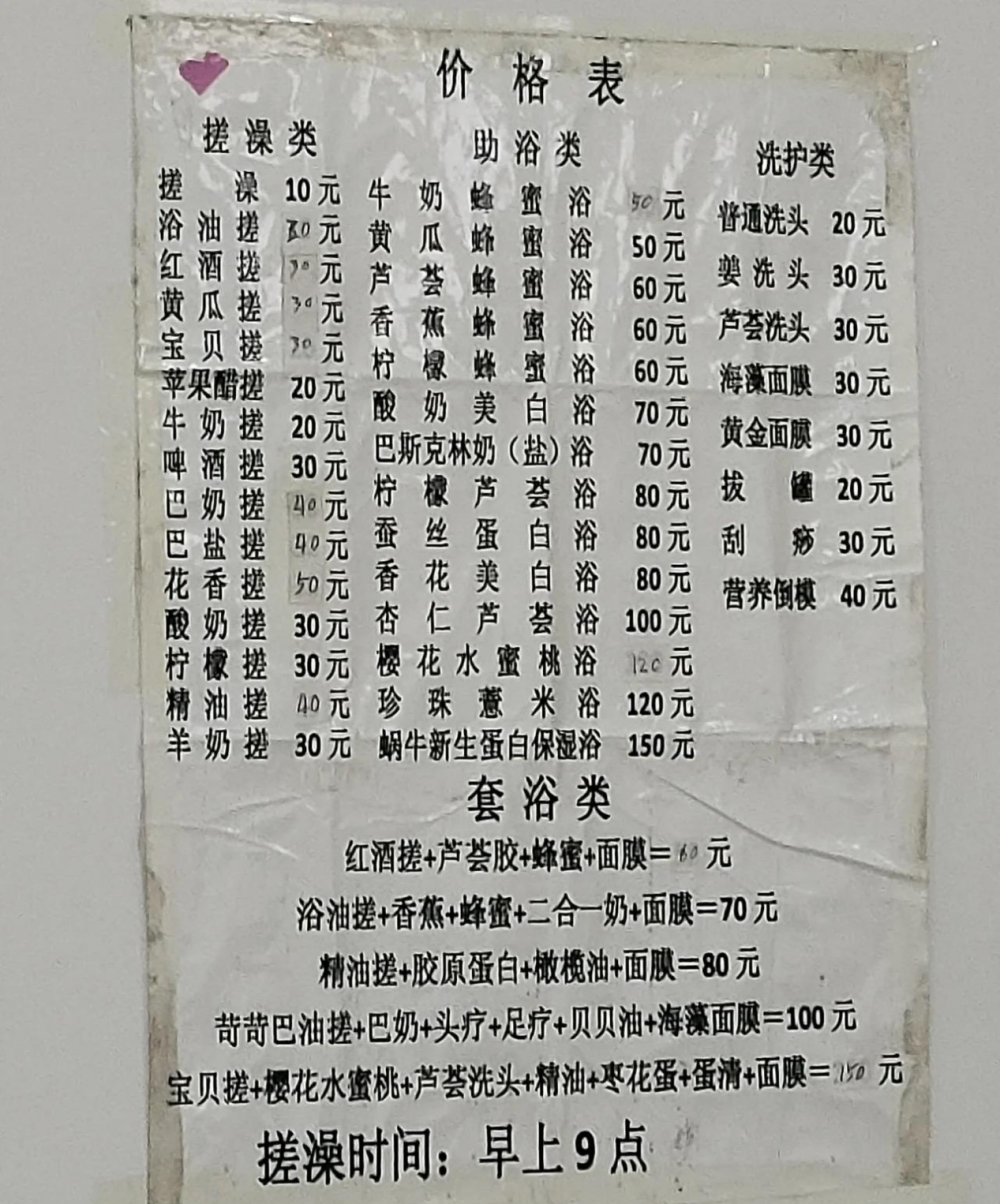 价格表
搓澡类
搓澡 10元
浴油搓 元
红酒搓 30元
黄瓜搓 30元
宝贝搓 30元
苹果醋搓 20元
牛奶搓 20元
啤酒搓 30元
巴奶搓 40元
巴盐搓 40元
花香搓 50元
酸奶搓 30元
柠檬搓 30元
精油搓 40元
羊奶搓 30元
助浴类
牛奶蜂蜜浴 50元
黄瓜蜂蜜浴 50元
芦荟蜂蜜浴 60元
香蕉蜂蜜浴 60元
柠檬蜂蜜浴 60元
酸奶美白浴 70元
巴斯克林奶（盐）浴 70元
柠檬芦荟浴 80元
蚕丝蛋白浴 80元
香花美白浴 80元
杏仁芦荟浴 100元
樱花水蜜桃浴 120元
珍珠薏米浴 120元
蜗牛新生蛋白保湿浴 150元
洗护类
普通洗头 20元
姜洗头 30元
芦荟洗头 30元
海藻面膜 30元
黄金面膜 30元
拔罐 20元
刮痧 30元
营养倒模 40元
套浴类
红酒搓+芦荟胶+蜂蜜+面膜=60元
浴油搓+香蕉+蜂蜜+二合一奶+面膜=70元
精油搓+胶原蛋白+橄榄油+面膜=80元
苛苛巴油搓+巴奶+头疗+足疗+贝贝油+海藻面膜=100元
宝贝搓+樱花水蜜桃+芦荟洗头+精油+枣花蛋+蛋清+面膜=150元
搓澡时间：早上9点